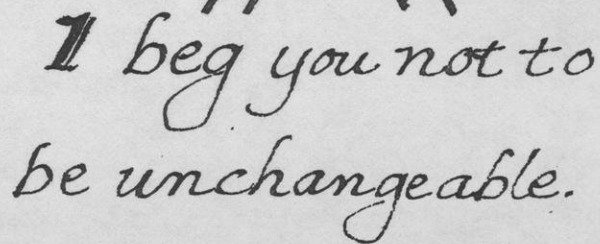 I beg you not to
be unchangeable.